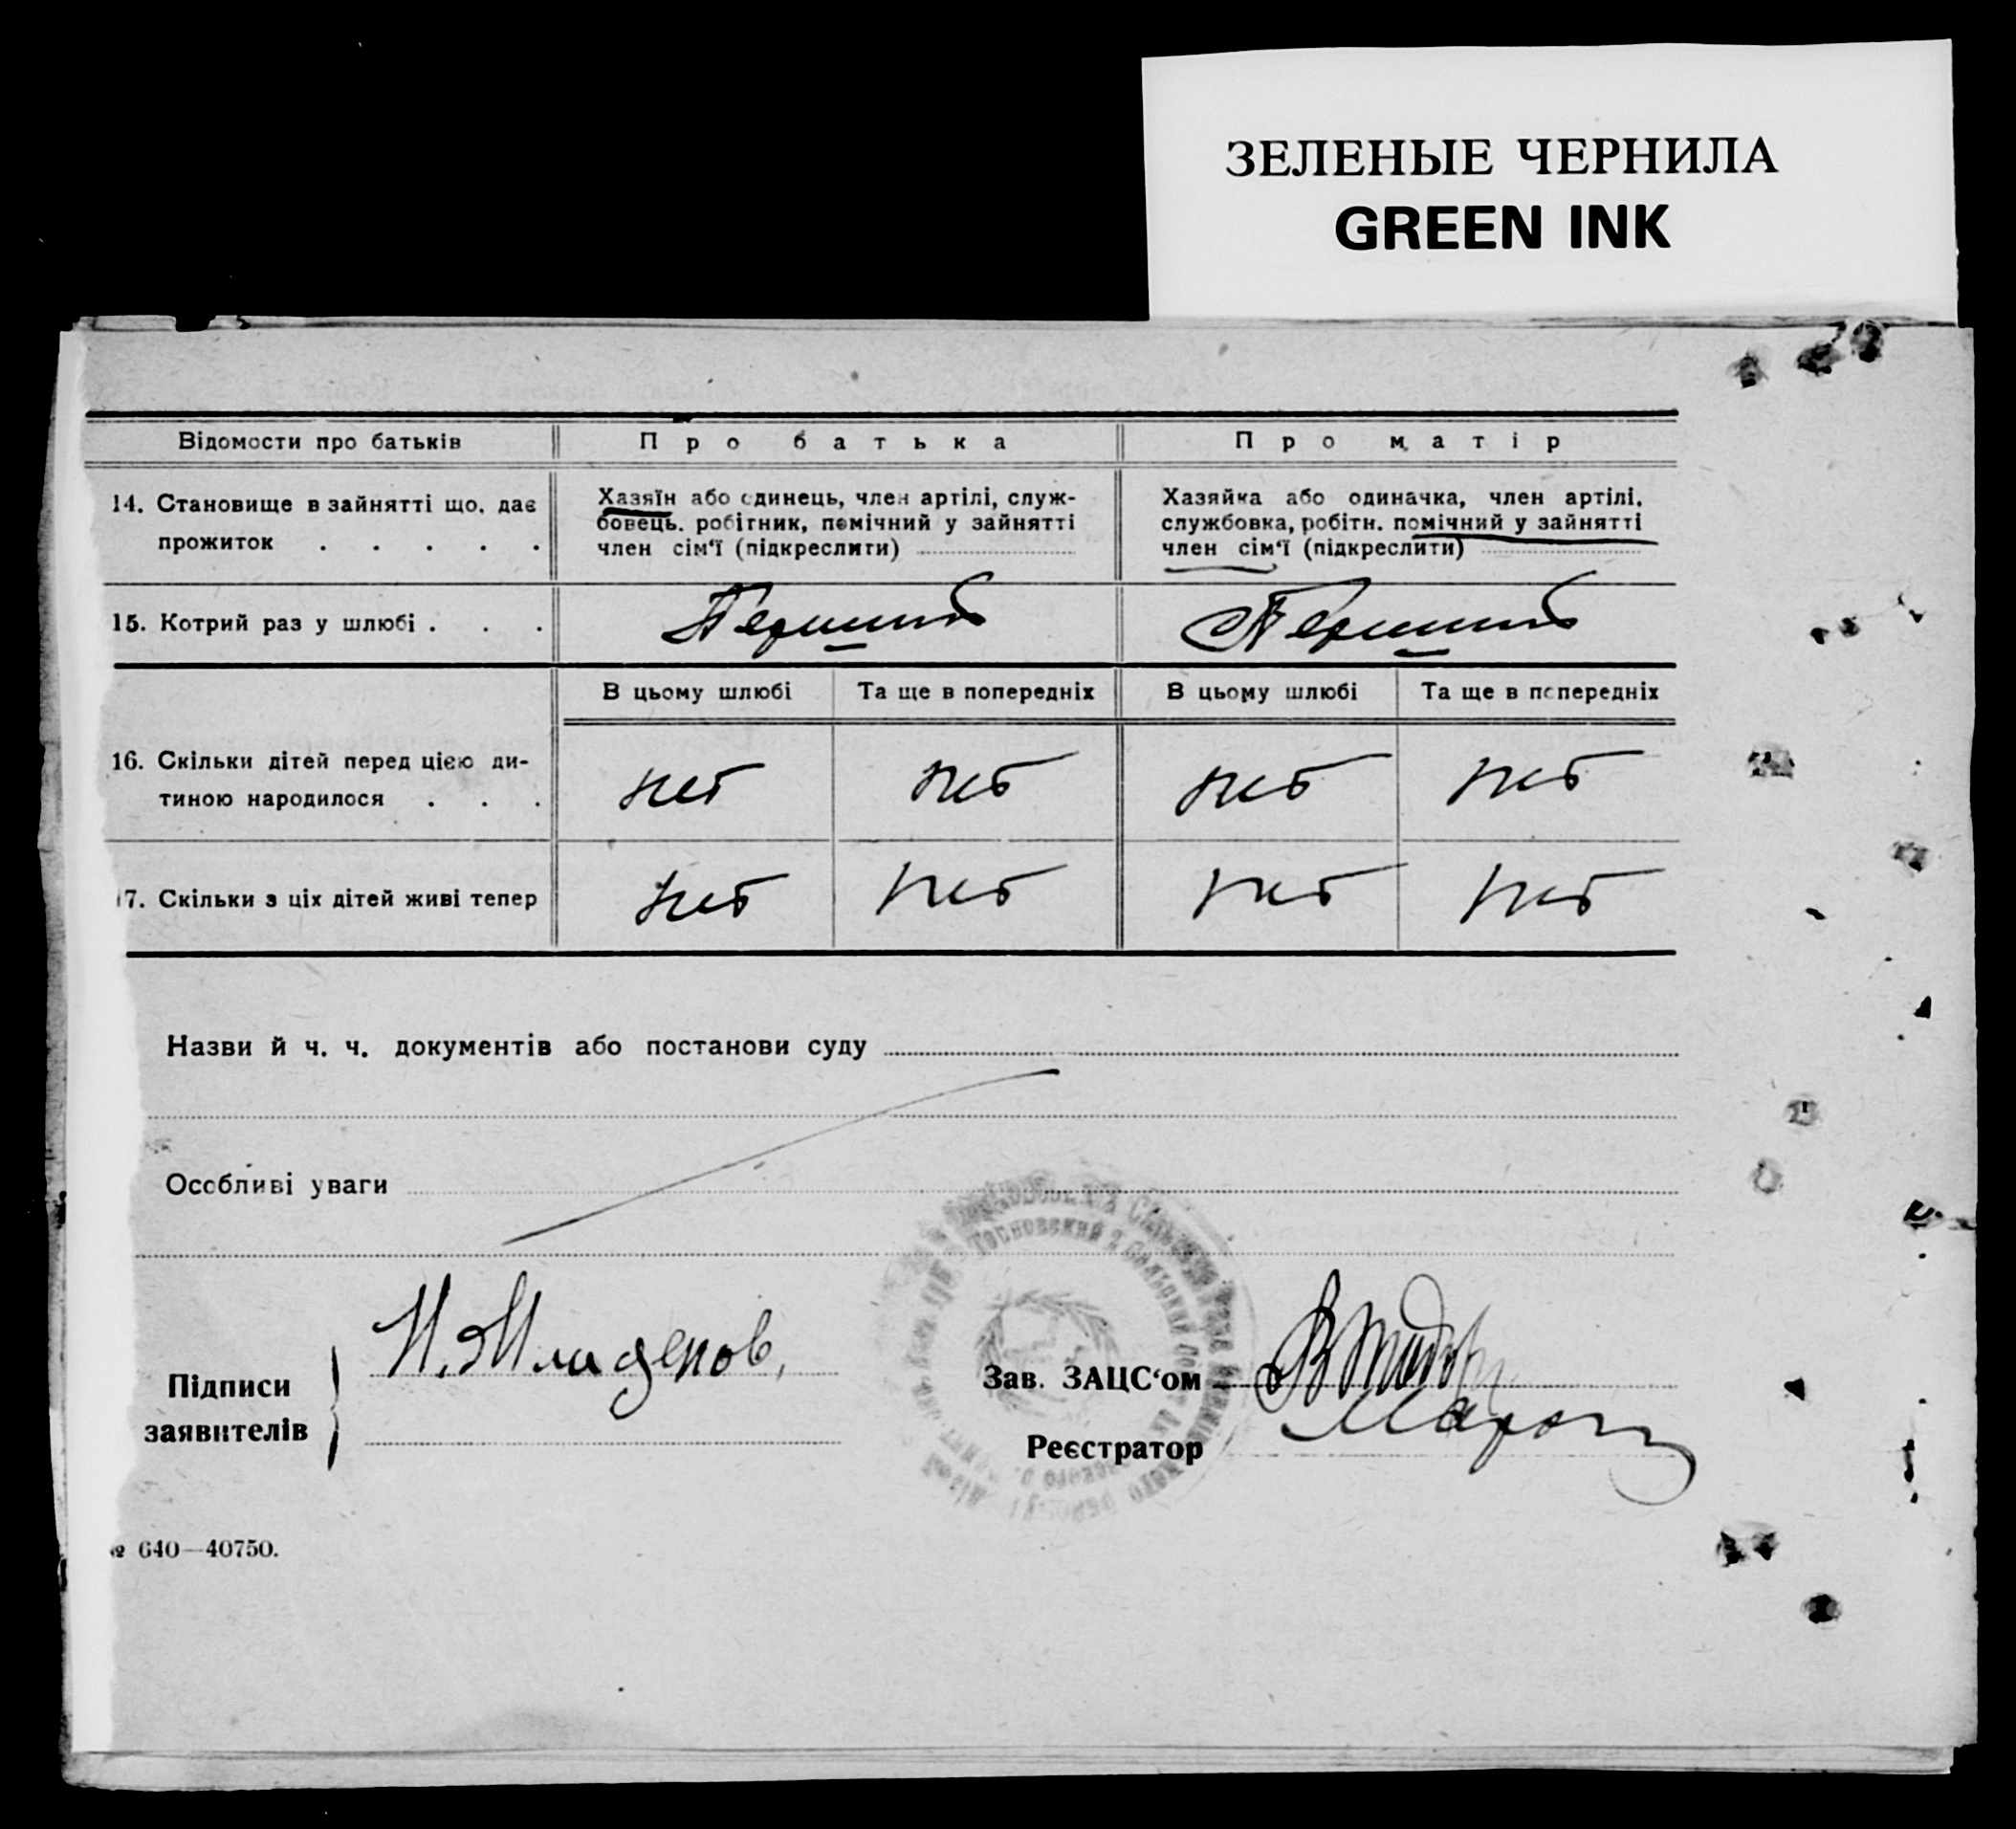 ЗЕЛЕНЫЕ ЧЕРНИЛА
GREEN INK
Відомости про батьків
Про батька
Про матір
14. Становище в зайнятті що, дає
прожиток . . . . .
Хазяїн або єдинець, член артілі, служ-
бовець. робітник, помічний у зайнятті
член сім‘ї (підкреслити)
Хазяйка або одиначка, член артілі,
службовка, робітн. помічний у зайнятті
член сім‘ї (підкреслити)
15. Котрий раз у шлюбі . . .
В цьому шлюбі
Та ще в попередніх
В цьому шлюбі
Та ще в попередніх
16. Скільки дітей перед цією ди-
тиною народилося . . .
нет нет нет нет
17. Скільки з ціх дітей живі тепер
нет нет нет нет
Назви й ч. ч. документів або постанови суду
Особливі уваги
Підписи
заявителів
И. Младенов,
Зав. ЗАЦС‘ом
Реєстратор
№ 640—40750.